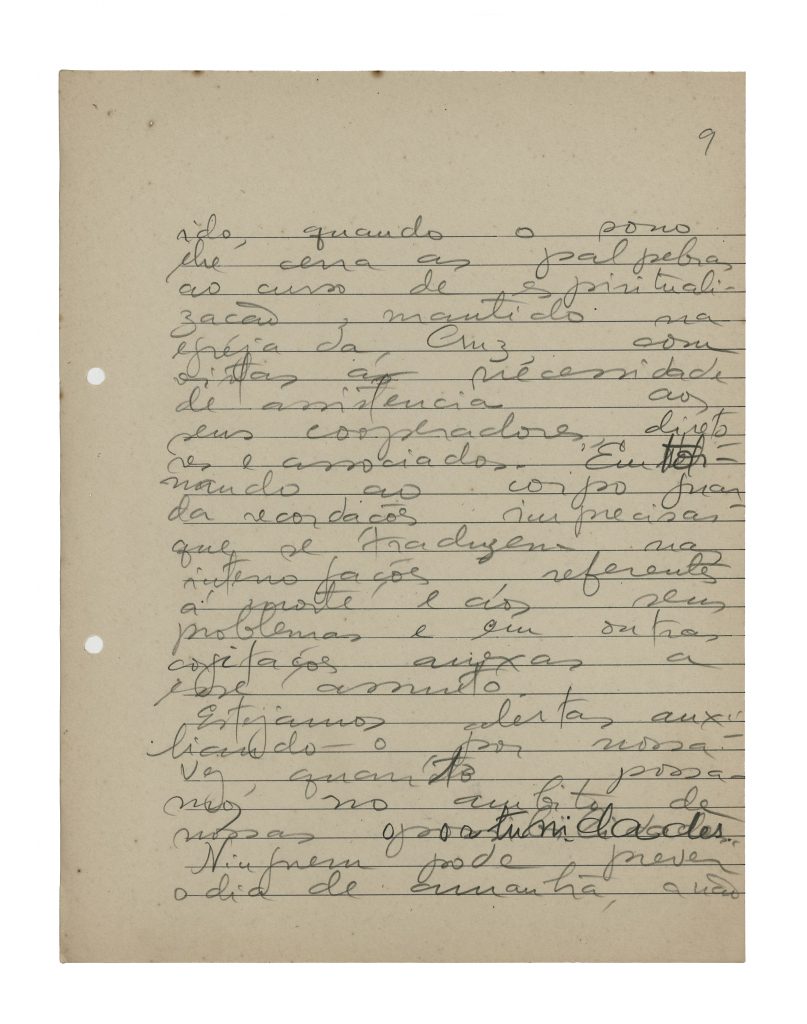 9
rido, quando o sono
lhe cerra as palpebras
ao curso de espirituali-
zacão, mantido na
egreja da, Cruz, com
vistas ás necessidade
de assistencia aos
seus cooperadores, direto
res e associados. Em tor-
nando ao corpo guar
da recordacões imprecisas
que se traduzem nas
interrogações referentes
á morte e aos seus
problemas e em outras
cogitações anexas a
esse assunto.
Estejamos alertas auxi-
liando-o por nossa
vez, quanto possa-
mos, no ambito de
nossas oportunidades.
Ninguem pode prever
o dia de amanhã, a não